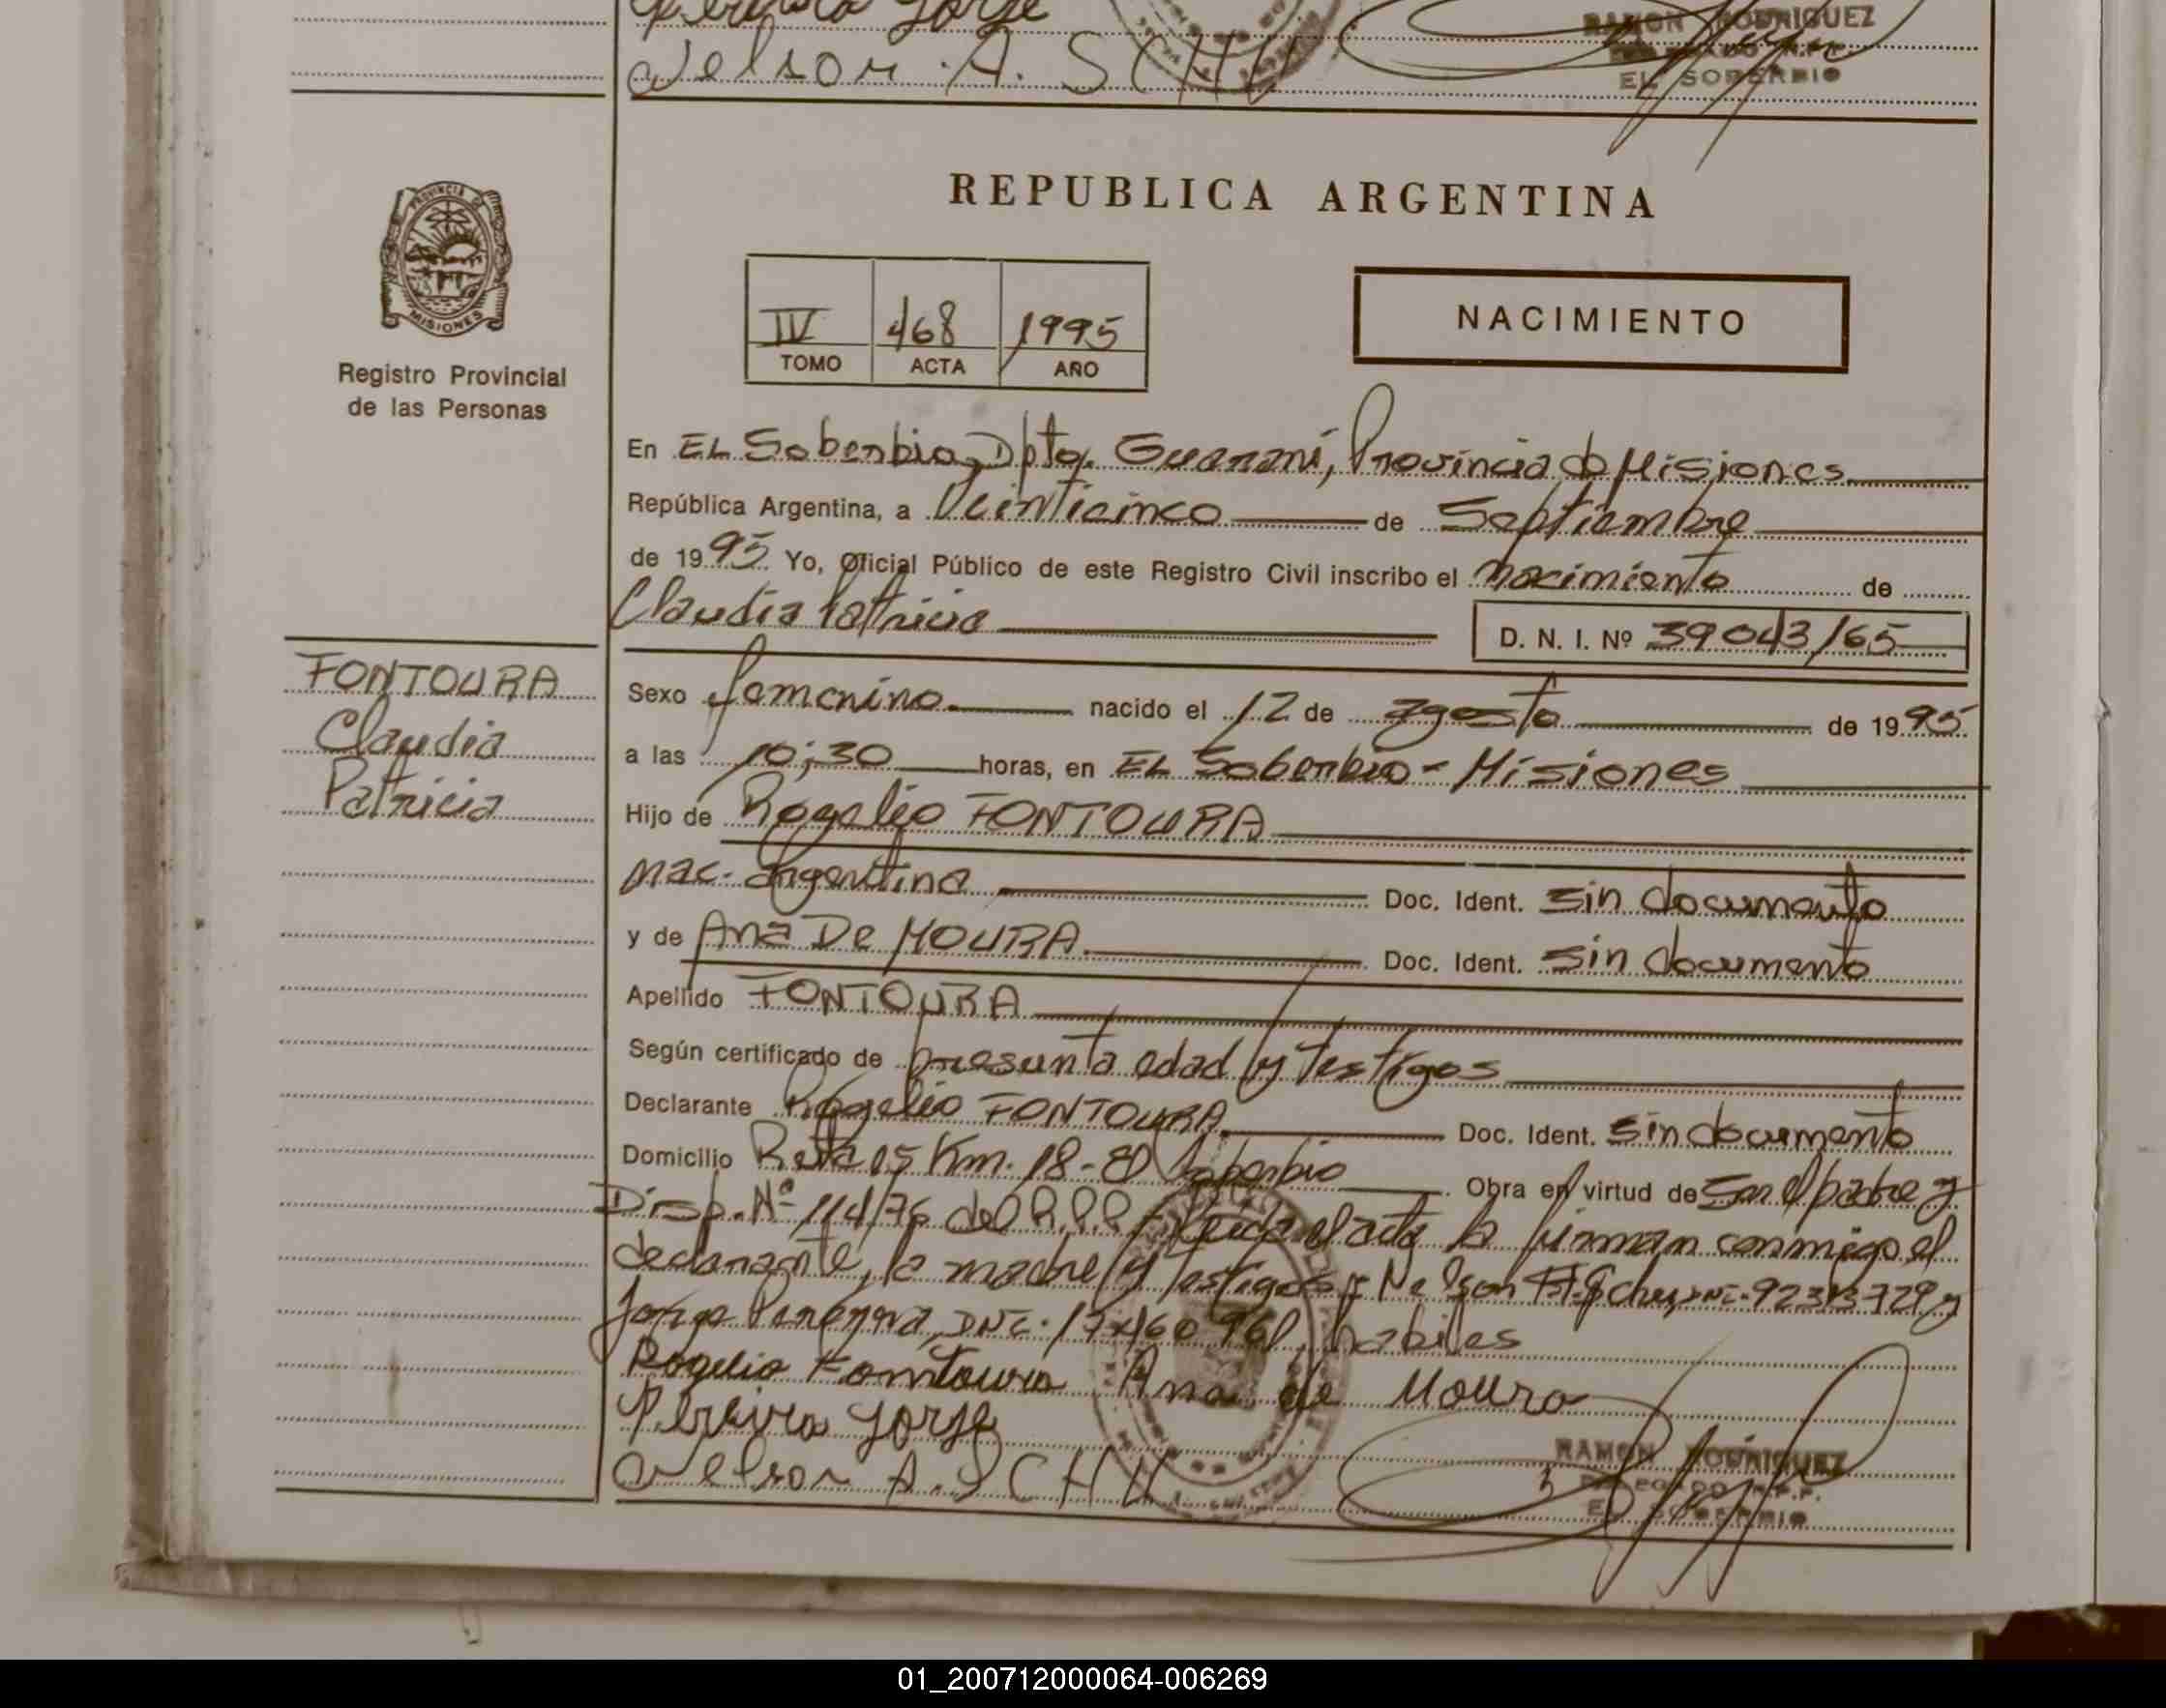 Pereira Jorge
Nelson A. SCHU
RAMON RODRIGUEZ
EL SOBERBIO
REPUBLICA ARGENTINA
PROVINCIA DE
MISIONES
Registro Provincial
de las Personas
IV 468 1995
TOMO ACTA AÑO
NACIMIENTO
En EL Soberbio, Dpto. Guaraní, Provincia de Misiones
República Argentina, a Veinticinco de Septiembre
de 1995 Yo, Oficial Público de este Registro Civil inscribo el nacimiento de
Claudia Patricia
D. N. I. Nº 39043165
FONTOURA
Claudia
Patricia
Sexo femenino nacido el 12 de agosto de 1995
a las 10:30 horas, en EL Soberbio - Misiones
Hijo de Rogelio FONTOURA
nac. argentina Doc. Ident. sin documento
y de Ana De MOURA Doc. Ident. sin documento
Apellido FONTOURA
Según certificado de presunta edad y testigos
Declarante Rogelio FONTOURA Doc. Ident. sin documento
Domicilio Ruta 15 Km. 18 - El Soberbio Obra en virtud de Ser el padre y
Disp. Nº 114/76 del R.P.P. Leída el acta la firman conmigo el
declarante, la madre y testigos: Nelson
Jorge Pereyra, DNI. habiles
Rogelio Fontoura Ana de Moura
Pereira Jorge
Nelson A. SCHU
RAMON RODRIGUEZ
DELEGADO R.P.P.
EL SOBERBIO
01_200712000064-006269